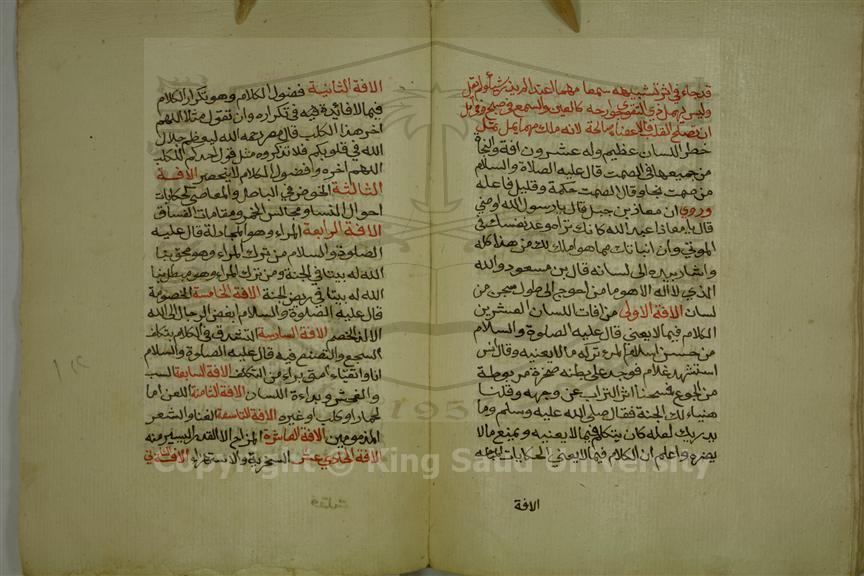 خطر اللسان عظيم وله عشرون افة والنجاة
من جميعها في الصمت قال عليه الصلاة والسلام
من صمت نجا وقال الصمت حكمة وقليل فاعله
وروي ان معاذ بن جبل قال يا رسول الله اوصني
قال يا معاذ اعبد الله كانك تراه وعد نفسك في
الموتى وان انباتك بما هو املك لك من هذا كله
واشار بيده الى لسانه قال بن مسعود والله
الذي لا اله الا هو ما من احوج الى طول سجن من
لسان الافة الاولى من افات اللسان العشرين
الكلام فيما لا يعني قال عليه الصلوة والسلام
من حسن اسلام المرء تركه ما لا يعنيه وقال انس
استشهد غلام فوجد على بطنه صخرة مربوطة
من الجوع فمسحنا اثر التراب عن وجهه وقلنا
هنيا لك الجنة فقال صلى الله عليه وسلم وما
يدريك لعله كان يتكلم فيما لا يعنيه ويمنع ما لا
يضره واعلم ان الكلام فيما لا يعني الحكايات
الافة
الافة الثانية فضول الكلام وهو تكرار الكلام
فيما لا فائدة فيه في تكراره وان تقول مثلا اللهم
اخر هذا الكلب قال مطرحمه الله ليعظم جلال
الله في قلوبكم فلا تذكروه مثل قول احدكم للكلب
اللهم اخره وافضول الكلام لا ينحصر الافة
الثالثة الخوض في الباطل والمعاصي كحكايات
احوال النسا ومجالس الخمر ومقامات الفساق
الافة الرابعة المراء وهو المجادلة قال عليه
الصلوة والسلام من ترك المراء وهو محق بنا
الله له بيتا في الجنة ومن ترك المراء وهو مبطل بنا
الله له بيتا في ربض الجنة الافة الخامسة الخصومة
قال عليه الصلوة والسلام ابغض الرجال الى الله
الالد الخصم الافة السادسة التقعر في الكلام بتكلف
السجع والتصنع فيه قال عليه الصلوة والسلام
انا واتقياء امتي براء من التكلف الافة السابعة السب
والفحش وبداءة اللسان الافة الثامنة اللعن اما
لحمار او كلب او غيره الافة التاسعة الغنا والشعر
المذمومين الافة العاشرة المزاح الا القدر اليسير منه
الافة الحادي عشر السخرية والاستهزاء الافة
Copyright © King Saud University
1957